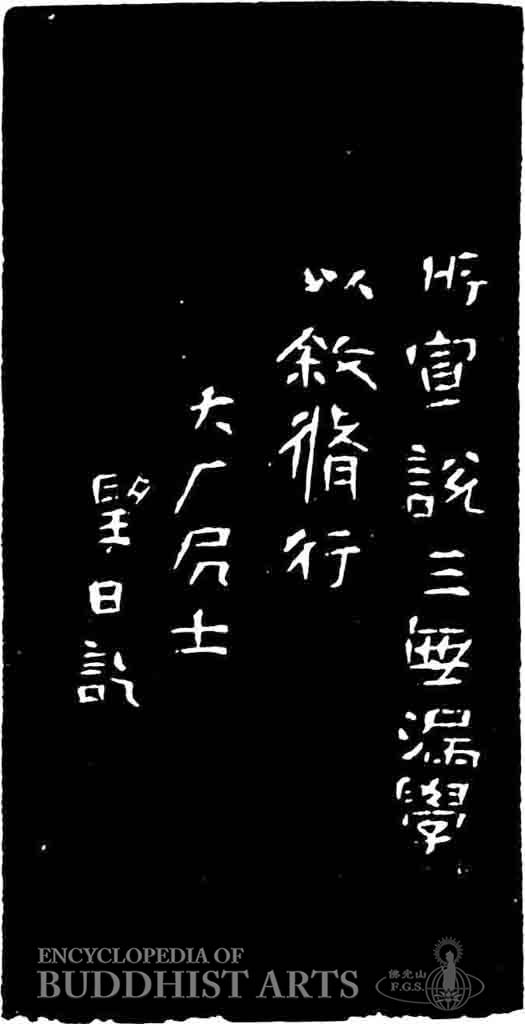 所宣說三無漏學
以敘脩行
大厂凥士
朢日記
ENCYCLOPEDIA OF
BUDDHIST ARTS
佛光山
F.G.S.